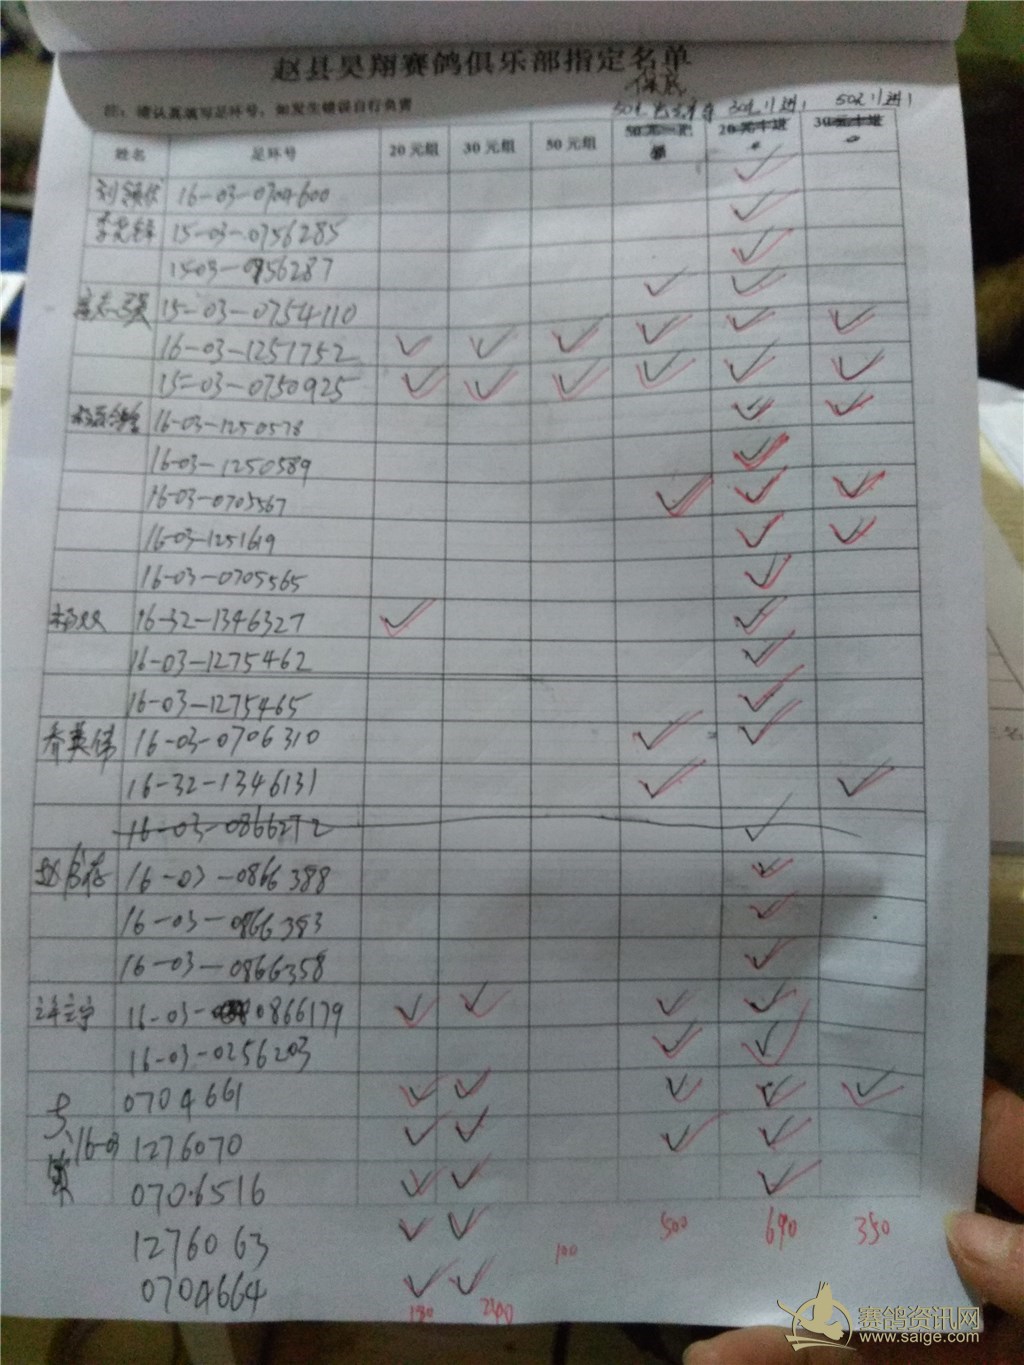 赵县昊翔赛鸽俱乐部指定名单
保底
注：请认真填写足环号，如发生错误自行负责
30元 1进1 50元 1进1
姓名 足环号 20元组 30元组 50元组 20元十进 30元十进
16-03-0704600
15-03-0756285
1503-0756287
15-03-0754110
16-03-1251752
15-03-0750925
16-03-1250578
16-03-1250589
16-03-0705567
16-03-1251619
16-03-0705565
杨双 16-32-1346327
16-03-1275462
16-03-1275465
乔英伟 16-03-0706310
16-32-1346131
16-03-0866272
赵 存 16-03-0866388
16-03-0866383
16-03-0866358
16-03-0866179
16-03-0256203
0704661
16-03 1276070
0706516
1276063
0704664
100 500 690 350
180
赛鸽资讯网
www.saige.com